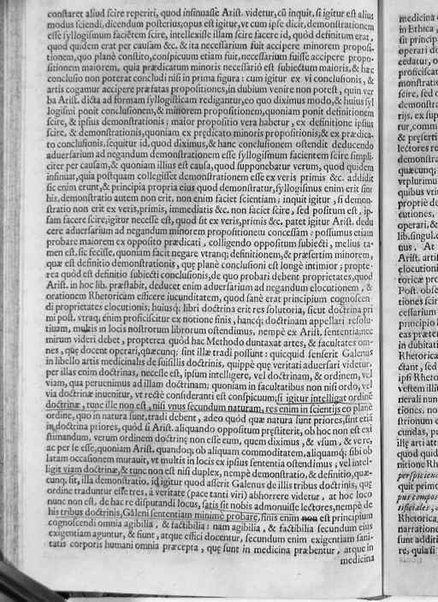 constaret aliud scire reperiri, quod insinuasse Arist. videtur, cũ inquit, si igitur est alius
modus sciendi, dicendum posterius, opus est igitur, ut cum ipse dicit, demonstrationem
esse syllogismum faciẽtem scire, intellexisse illam scire facere id, quod definitum erat,
quod quidem erat per causam &c. & ita necessarium fuit accipere minorem proposi-
tionem, quo planè constito, conspicuum etiam fuit, necessarium fuisse accipere propo-
sitionem maiorem, quia prædicatum minoris necessariò est subiectum maioris, & hæc
conclusio non poterat concludi nisi in prima figura: cum igitur ex vi conclusionis, &
artis cogamur accipere præfatas propositiones, in dubium venire non potest, quin ver
ba Arist. dicta ad formam syllogisticam redigantur, eo quo diximus modo, & huius syl
logismi ponit conclusionem, & minorem propositionem, quoniam ponit definitionem
scire, & ipsius demonstrationis: maior propositio vera habetur, ex definitione ipsius
scire, & demonstrationis, quoniam ex prędicato minoris propositionis, & ex prædica-
to conclusionis, sequitur id, quod diximus, & hanc conclusionem ostendit deducendo
aduersarium ad negandum demonstrationem esse syllogismum facientem scire simpli-
citer per causam, & quoniam illius est causa, quod supponebatur verum, quod quidem
insinuat, quia postquam collegisset demonstrationem esse ex veris primis &c. addidit
sic enim erunt, & principia propria eius quod demonstratur, syllogismus enim erit sine
his, demonstratio autem non erit, non enim faciet scientiam: inquit igitur, si demon-
stratio non erit ex veris, primis, immediatis &c. non faciet scire, sed positum est, ip-
sam facere scire, igitur necesse est, quod sit ex veris, primis &c. patet igitur Arist. dedu
cere aduersarium ad negandum minorem propositionem concessam: possumus etiam
probare maiorem ex opposito prædicati, colligendo oppositum subiecti, melius ta-
men est, sic fecisse, quoniam facit negare vtranq; definitionem, & præsertim minorem,
quæ est definitio demonstrationis, quę planè conclusioni est longè intimior, propte-
rea quòd est definitio subiecti conclusionis, de quo probari debent proprietates, quod
Arist. in hoc lib. præstabit, deducet enim aduersarium ad negandum elocutionem, &
orationem Rhetoricam efficere iucunditatem, quod sanè erat principium cognoscen-
di proprietates elocutionis, huiusq; libri doctrina erit resolutoria, sicut doctrina pri
mi post. vtraq; enim proficiscitur ex notione finis, hancq; doctrinam appellari resolu-
tiuam, multis in locis nostrorum librorum ostendimus, nempè ex Arist. sententia nec
mirum videri debet, propterea quòd hac Methodo duntaxat artes, & facultates om-
nes, quę docent operari, quæcunq; sint illæ tradi possunt: quicquid senserit Galenus
in libello artis medicinalis de suiusdis doctrinis, quippe quæ veritati aduersari videtur,
per illas enim doctrinas, necesse est, ipsum intelligere, vel doctrinam, & ordinem, vel
viam, qua perueniamus ad illam doctrinam: quoniam in facultatibus non nisi ordo, vel
via doctrinæ inuenitur, vt rectè consideranti est conspicuum, si igitur intelligat ordinẽ
doctrinæ, tunc ille non est, nisi vnus secundum naturam, res enim in scientijs eo planè
ordine, quo in natura sunt, tradi debent, adeo quòd quæ natura sunt priores, sint etiã
in doctrina priores, quòd si Arist. aliquando oppositum præstiterit, ob hoc non est exi
stimandum, verum ordinem doctrinę non esse eum, quem diximus, & vsum, & vere,
ac per se esse, quoniam Arist. quandoq; ob aliquam commoditatem, aliquamq; sibi ob
latam occasionem mutauit, vt multis in locis ex ipsius sententia ostendimus, vel intel-
ligit viam doctrinæ, & tunc non est nisi duplex, nempè demonstratio, & definitio, quæ-
cunq; sit, illa demonstratio, id igitur quod asserit Galenus de illis tribus doctrinis, quę
ordine traduntur esse tres, à veritate (pace tanti viri) abhorrere videtur, at hoc loco
nunc non est, de hac re disputandi locus, satis sit nobis admonuisse lectores, nempè de
his tribus doctrinis, Galeni sententiam minimè probare, finis enim non est principium
cognoscendi omnia agibilia, & factibilia: nam agibilia, & factibilia secundum eius
exigentiam aguntur, & fiunt, atque effici docentur, secundum enim exigentiam sani-
tatis corporis humani omnia præcepta, quę sunt in medicina præbentur, atque in
medicina